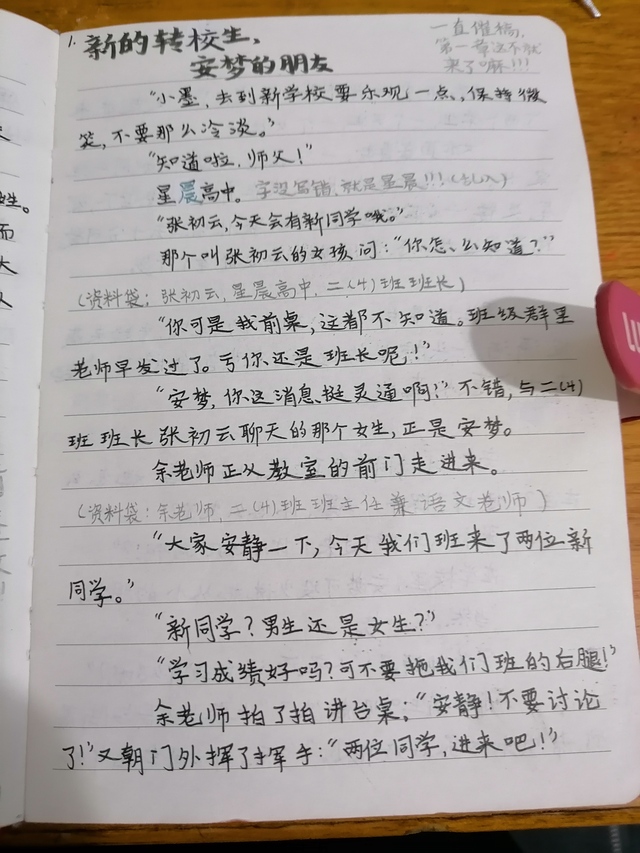 1.新的转校生,
安梦的朋友
一直催稿,
第一章这不就
来了嘛!!!
"小墨,去到新学校要乐观一点,保持微
笑,不要那么冷淡。"
"知道啦,师父!"
星晨高中。字没写错,就是星晨!!!(乱入)
"张初云,今天会有新同学哦。"
那个叫张初云的女孩问:"你怎么知道?"
(资料袋:张初云,星晨高中,二(4)班班长)
"你可是我前桌,这都不知道。班级群里
老师早发过了。亏你还是班长呢!"
"安梦,你这消息挺灵通啊?"不错,与二(4)
班班长张初云聊天的那个女生,正是安梦。
余老师正从教室的前门走进来。
(资料袋:余老师,二(4)班班主任兼语文老师)
"大家安静一下,今天我们班来了两位新
同学。"
"新同学?男生还是女生?"
"学习成绩好吗?可不要拖我们班的后腿!"
余老师拍了拍讲台桌:"安静!不要讨论
了!"又朝门外挥了挥手:"两位同学,进来吧!"
生。
而
大